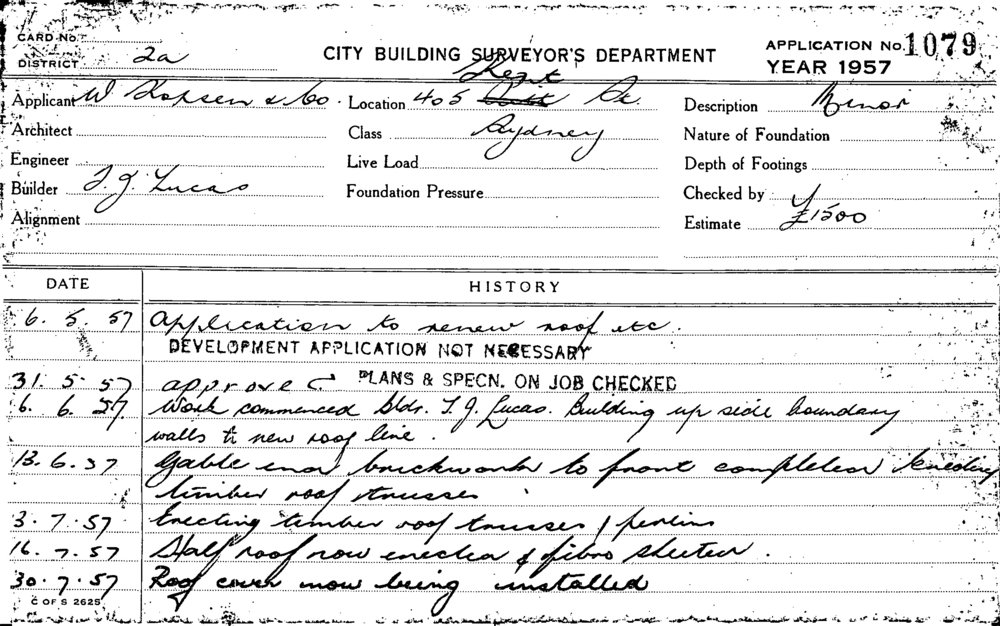 CARD No.
DISTRICT 2a
CITY BUILDING SURVEYOR'S DEPARTMENT
APPLICATION No. 1079
YEAR 1957
Applicant W Kopsen & Co.
Architect
Engineer
Builder T. J. Lucas
Alignment
Kent
Location 405 St.
Class Sydney
Live Load
Foundation Pressure
Description Minor
Nature of Foundation
Depth of Footings
Checked by
Estimate £1500
DATE HISTORY
6. 5. 57 Application to renew roof etc.
DEVELOPMENT APPLICATION NOT NECESSARY
31. 5. 57 approved PLANS & SPECN. ON JOB CHECKED
6. 6. 57 Work commenced bldr. T. J. Lucas. Building up side boundary
walls to new roof line.
13. 6. 57 Gable end brickwork to front completed
timber roof trusses
3. 7. 57 Erecting timber roof trusses / perlins
16. 7. 57 Half roof now erected & fibro sheeted.
30. 7. 57 Roof cover now being installed
C OF S 2625